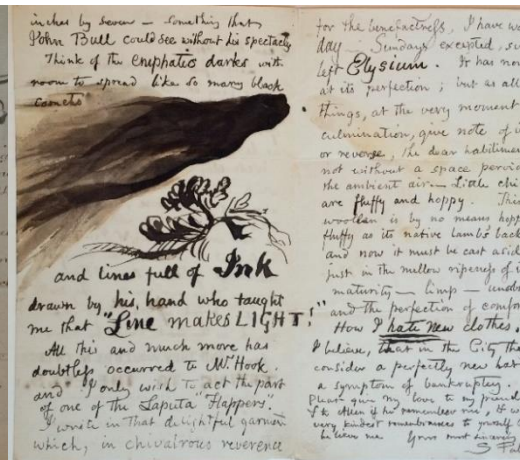 inches by seven — something that
John Bull could see without his spectacles
Think of the emphatic darks with
room to spread like so many black
and lines full of Ink
drawn by his hand who taught
me that "Line makes LIGHT!"
All this and much more has
doubtless occurred to Mr Hook.
and I only wish to act the part
of one of the Laputa "Flappers".
I wrote in that delightful garment
which, in chivalrous reverence
for the benefactress, I have wo
day — Sundays excepted, su
left Elysium. It has now
at its perfection; but as all
things, at the very moment
culmination, give note of
or reverse, the dear habiliment
not without a space pervious
the ambient air — Little chi
are fluffy and happy. This
woollen is by no means happ
fluffy as its native lambs' back
and now it must be cast aside
just in the mellow ripeness of
maturity — limp —
and the perfection of comfor
How I hate new clothes.
I believe, that in the City the
consider a perfectly new hat
a symptom of bankruptcy.
Please give my love to my friend
if he remembers me,
very kindest remembrances to yourself
believe me Yours most sincerely
S